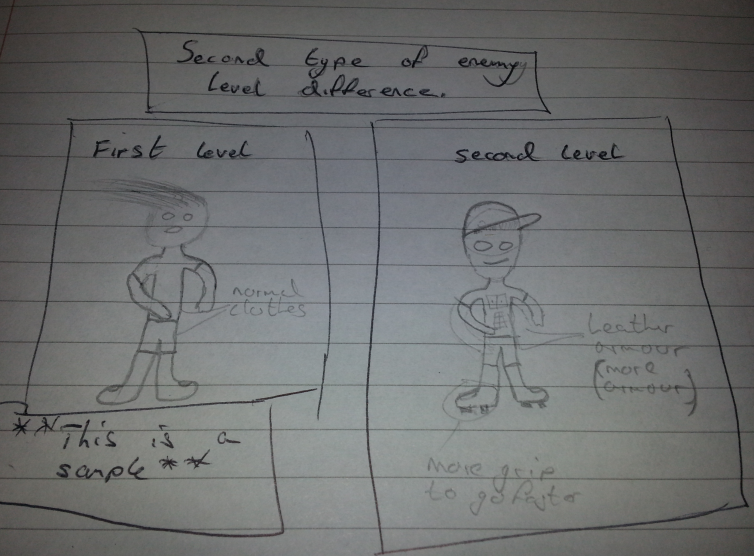 Second type of enemy
level difference.
First level
normal
clothes
**This is a
sample**
second level
Leather
armour
(more
armour)
More grip
to go faster